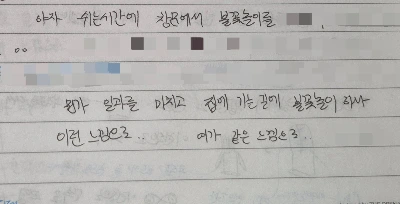 아자 쉬는시간에 창문에서 불꽃놀이를
뭔가 일과를 마치고 집에 가는길에 불꽃놀이 하나
이런 느낌으로.. 여가 같은 느낌으로..